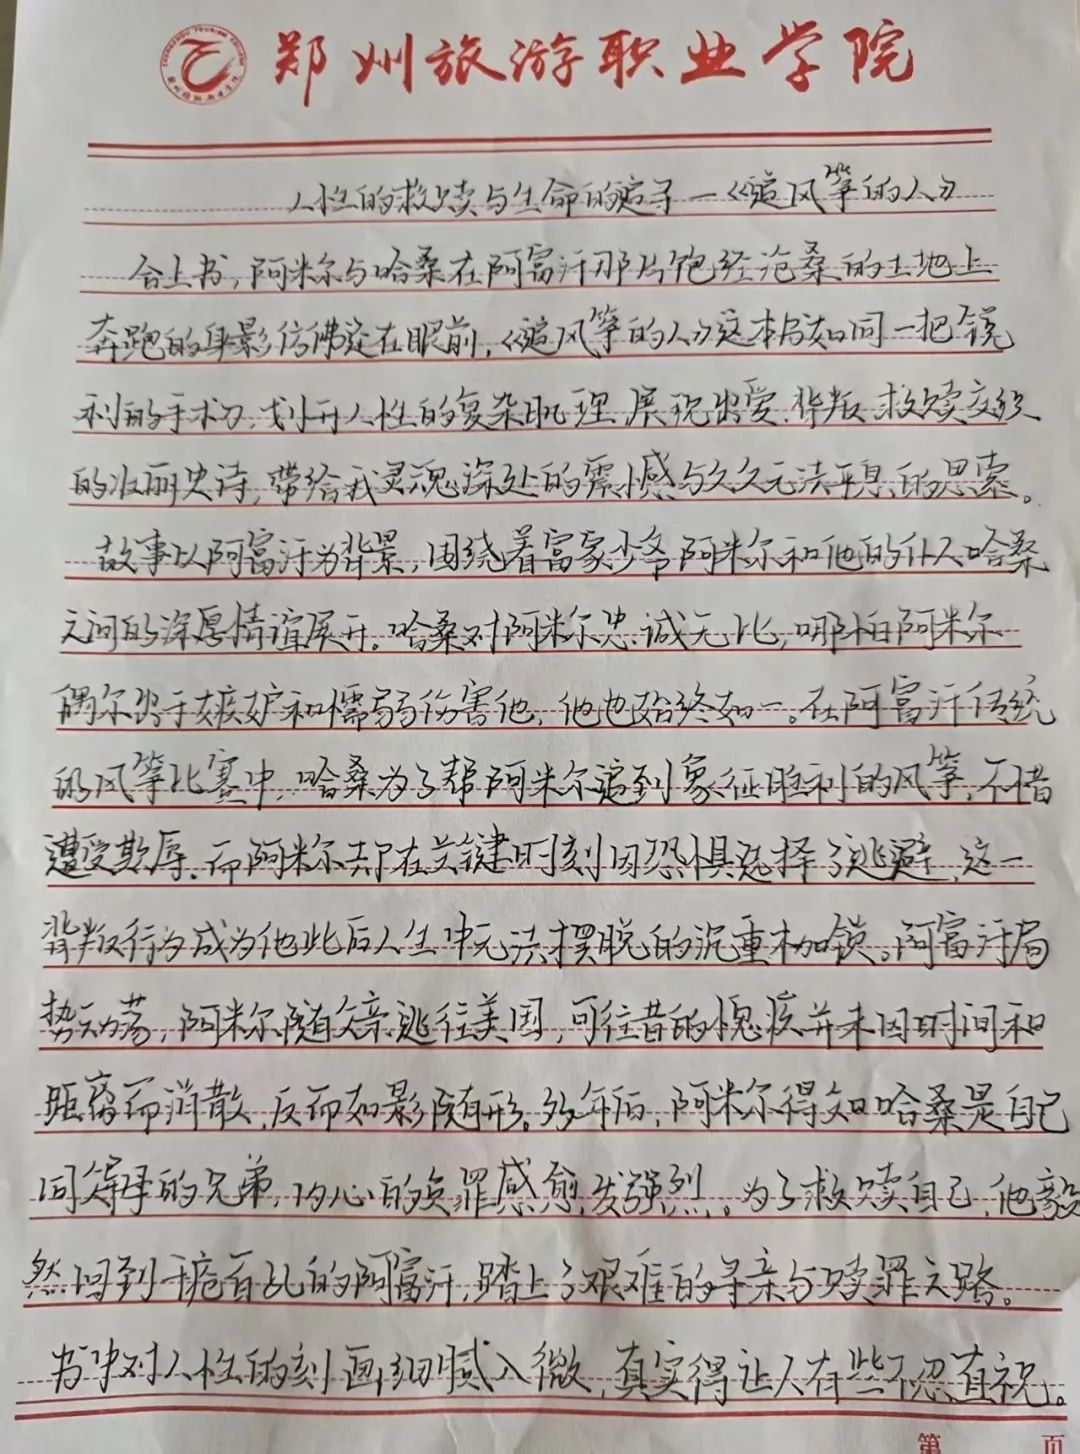 郑州旅游职业学院
人性的救赎与生命的追寻—《追风筝的人》
合上书，阿米尔与哈桑在阿富汗那片饱经沧桑的土地上
奔跑的身影仿佛还在眼前，《追风筝的人》这本书如同一把锐
利的手术刀，划开人性的复杂肌理，展现出爱、背叛、救赎交织
的壮丽史诗，带给我灵魂深处的震撼与久久无法平息的思索。
故事以阿富汗为背景，围绕着富家少爷阿米尔和他的仆人哈桑
之间的深厚情谊展开。哈桑对阿米尔忠诚无比，哪怕阿米尔
偶尔出于嫉妒和懦弱伤害他，他也始终如一。在阿富汗传统
的风筝比赛中，哈桑为了帮阿米尔追到象征胜利的风筝，不惜
遭受欺辱，而阿米尔却在关键时刻因恐惧选择了逃避，这一
背叛行为成为他此后人生中无法摆脱的沉重枷锁。阿富汗局
势动荡，阿米尔随父亲逃往美国，可往昔的愧疚并未因时间和
距离而消散，反而如影随形。多年后，阿米尔得知哈桑是自己
同父异母的兄弟，内心的负罪感愈发强烈。为了救赎自己，他毅
然回到千疮百孔的阿富汗，踏上了艰难的寻亲与赎罪之路。
书中对人性的刻画细腻入微，真实得让人有些不忍直视。
第 页